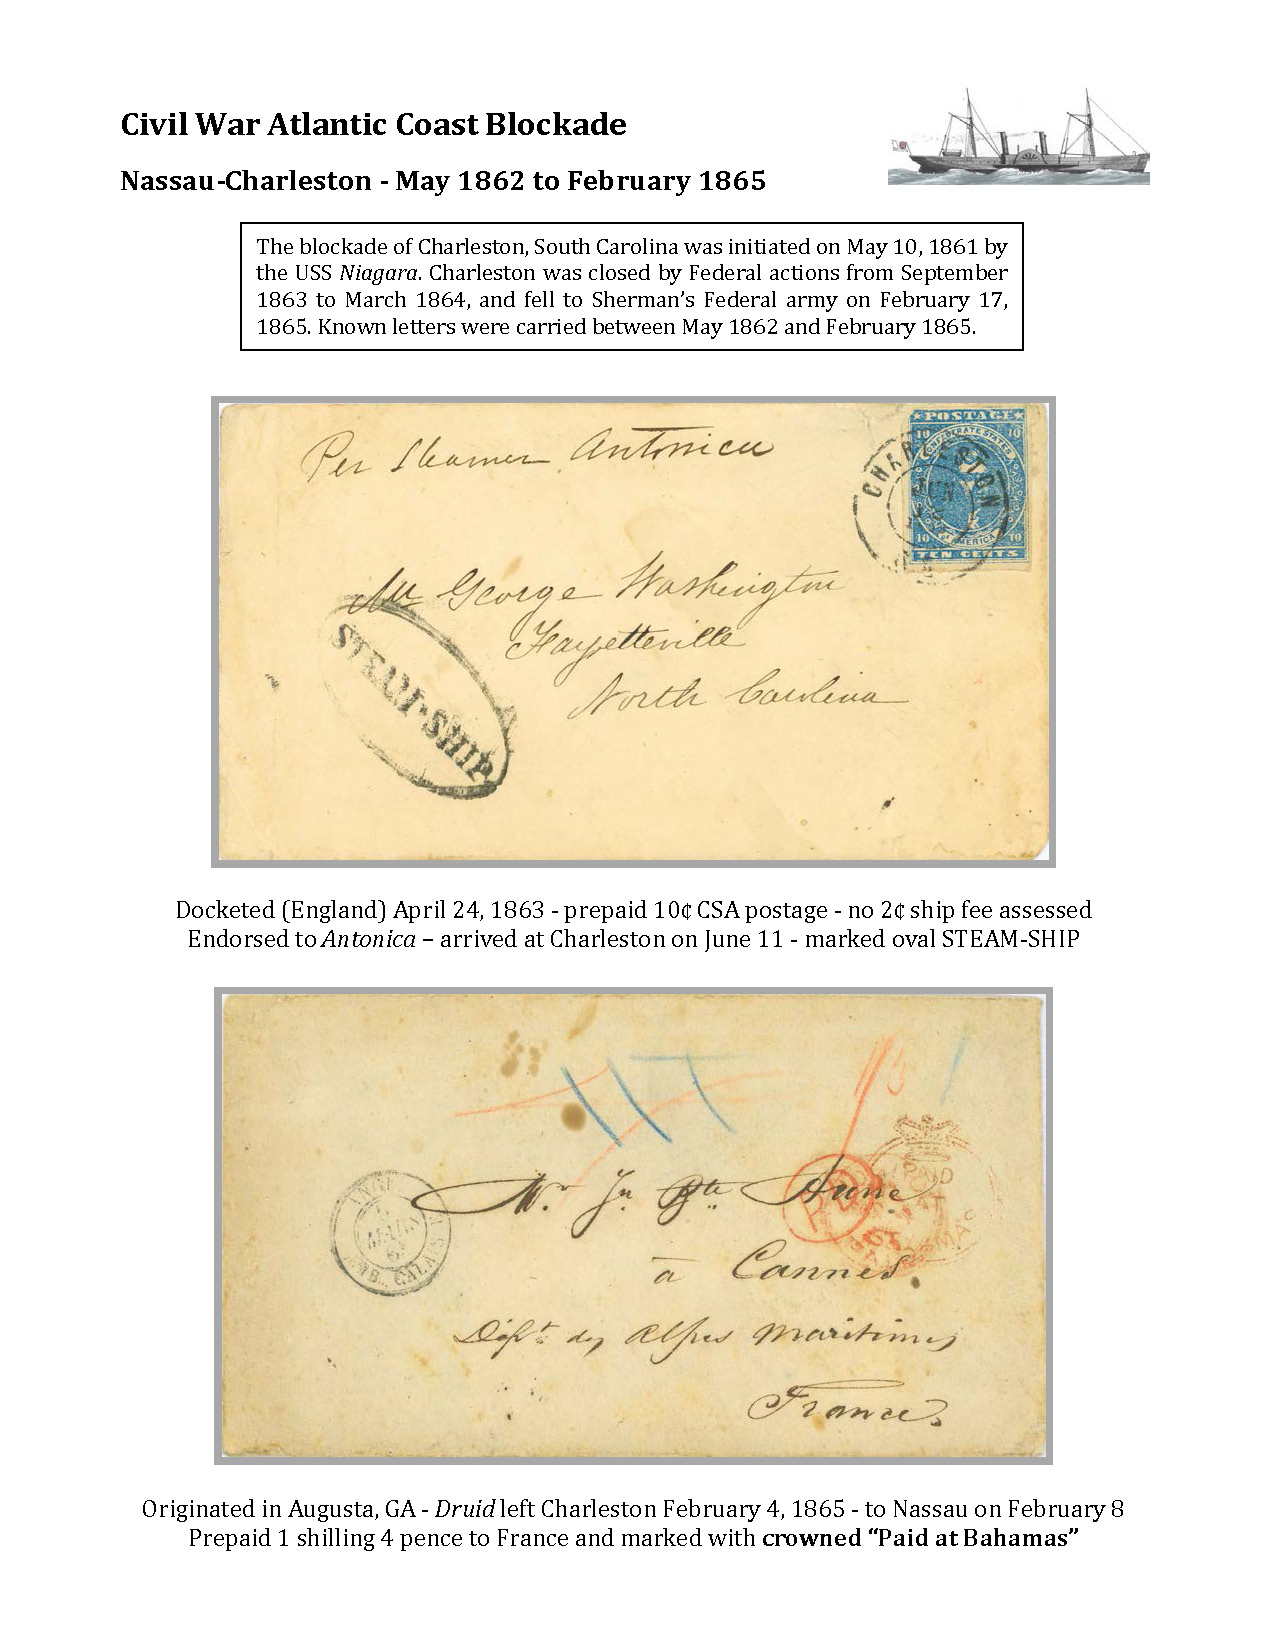 Civil War Atlantic Coast Blockade
Nassau-Charleston - May 1862 to February 1865
The blockade of Charleston, South Carolina was initiated on May 10, 1861 by
the USS Niagara. Charleston was closed by Federal actions from September
1863 to March 1864, and fell to Sherman's Federal army on February 17,
1865. Known letters were carried between May 1862 and February 1865.
Per Steamer Antonica
POSTAGE
10 CONFEDERATE STATES 10
CHARLESTON
JUN
10 OF AMERICA 10
TEN CENTS
Mr George Washington
Fayetteville
North Carolina
STEAM-SHIP
Docketed (England) April 24, 1863 - prepaid 10¢ CSA postage - no 2¢ ship fee assessed
Endorsed to Antonica – arrived at Charleston on June 11 - marked oval STEAM-SHIP
PAID
AT
BAHAMAS
PD
Mr. Jn Bte Anne
à Cannes.
MARS
CALAIS
Dépt. des Alpes Maritimes
France.
Originated in Augusta, GA - Druid left Charleston February 4, 1865 - to Nassau on February 8
Prepaid 1 shilling 4 pence to France and marked with crowned "Paid at Bahamas"